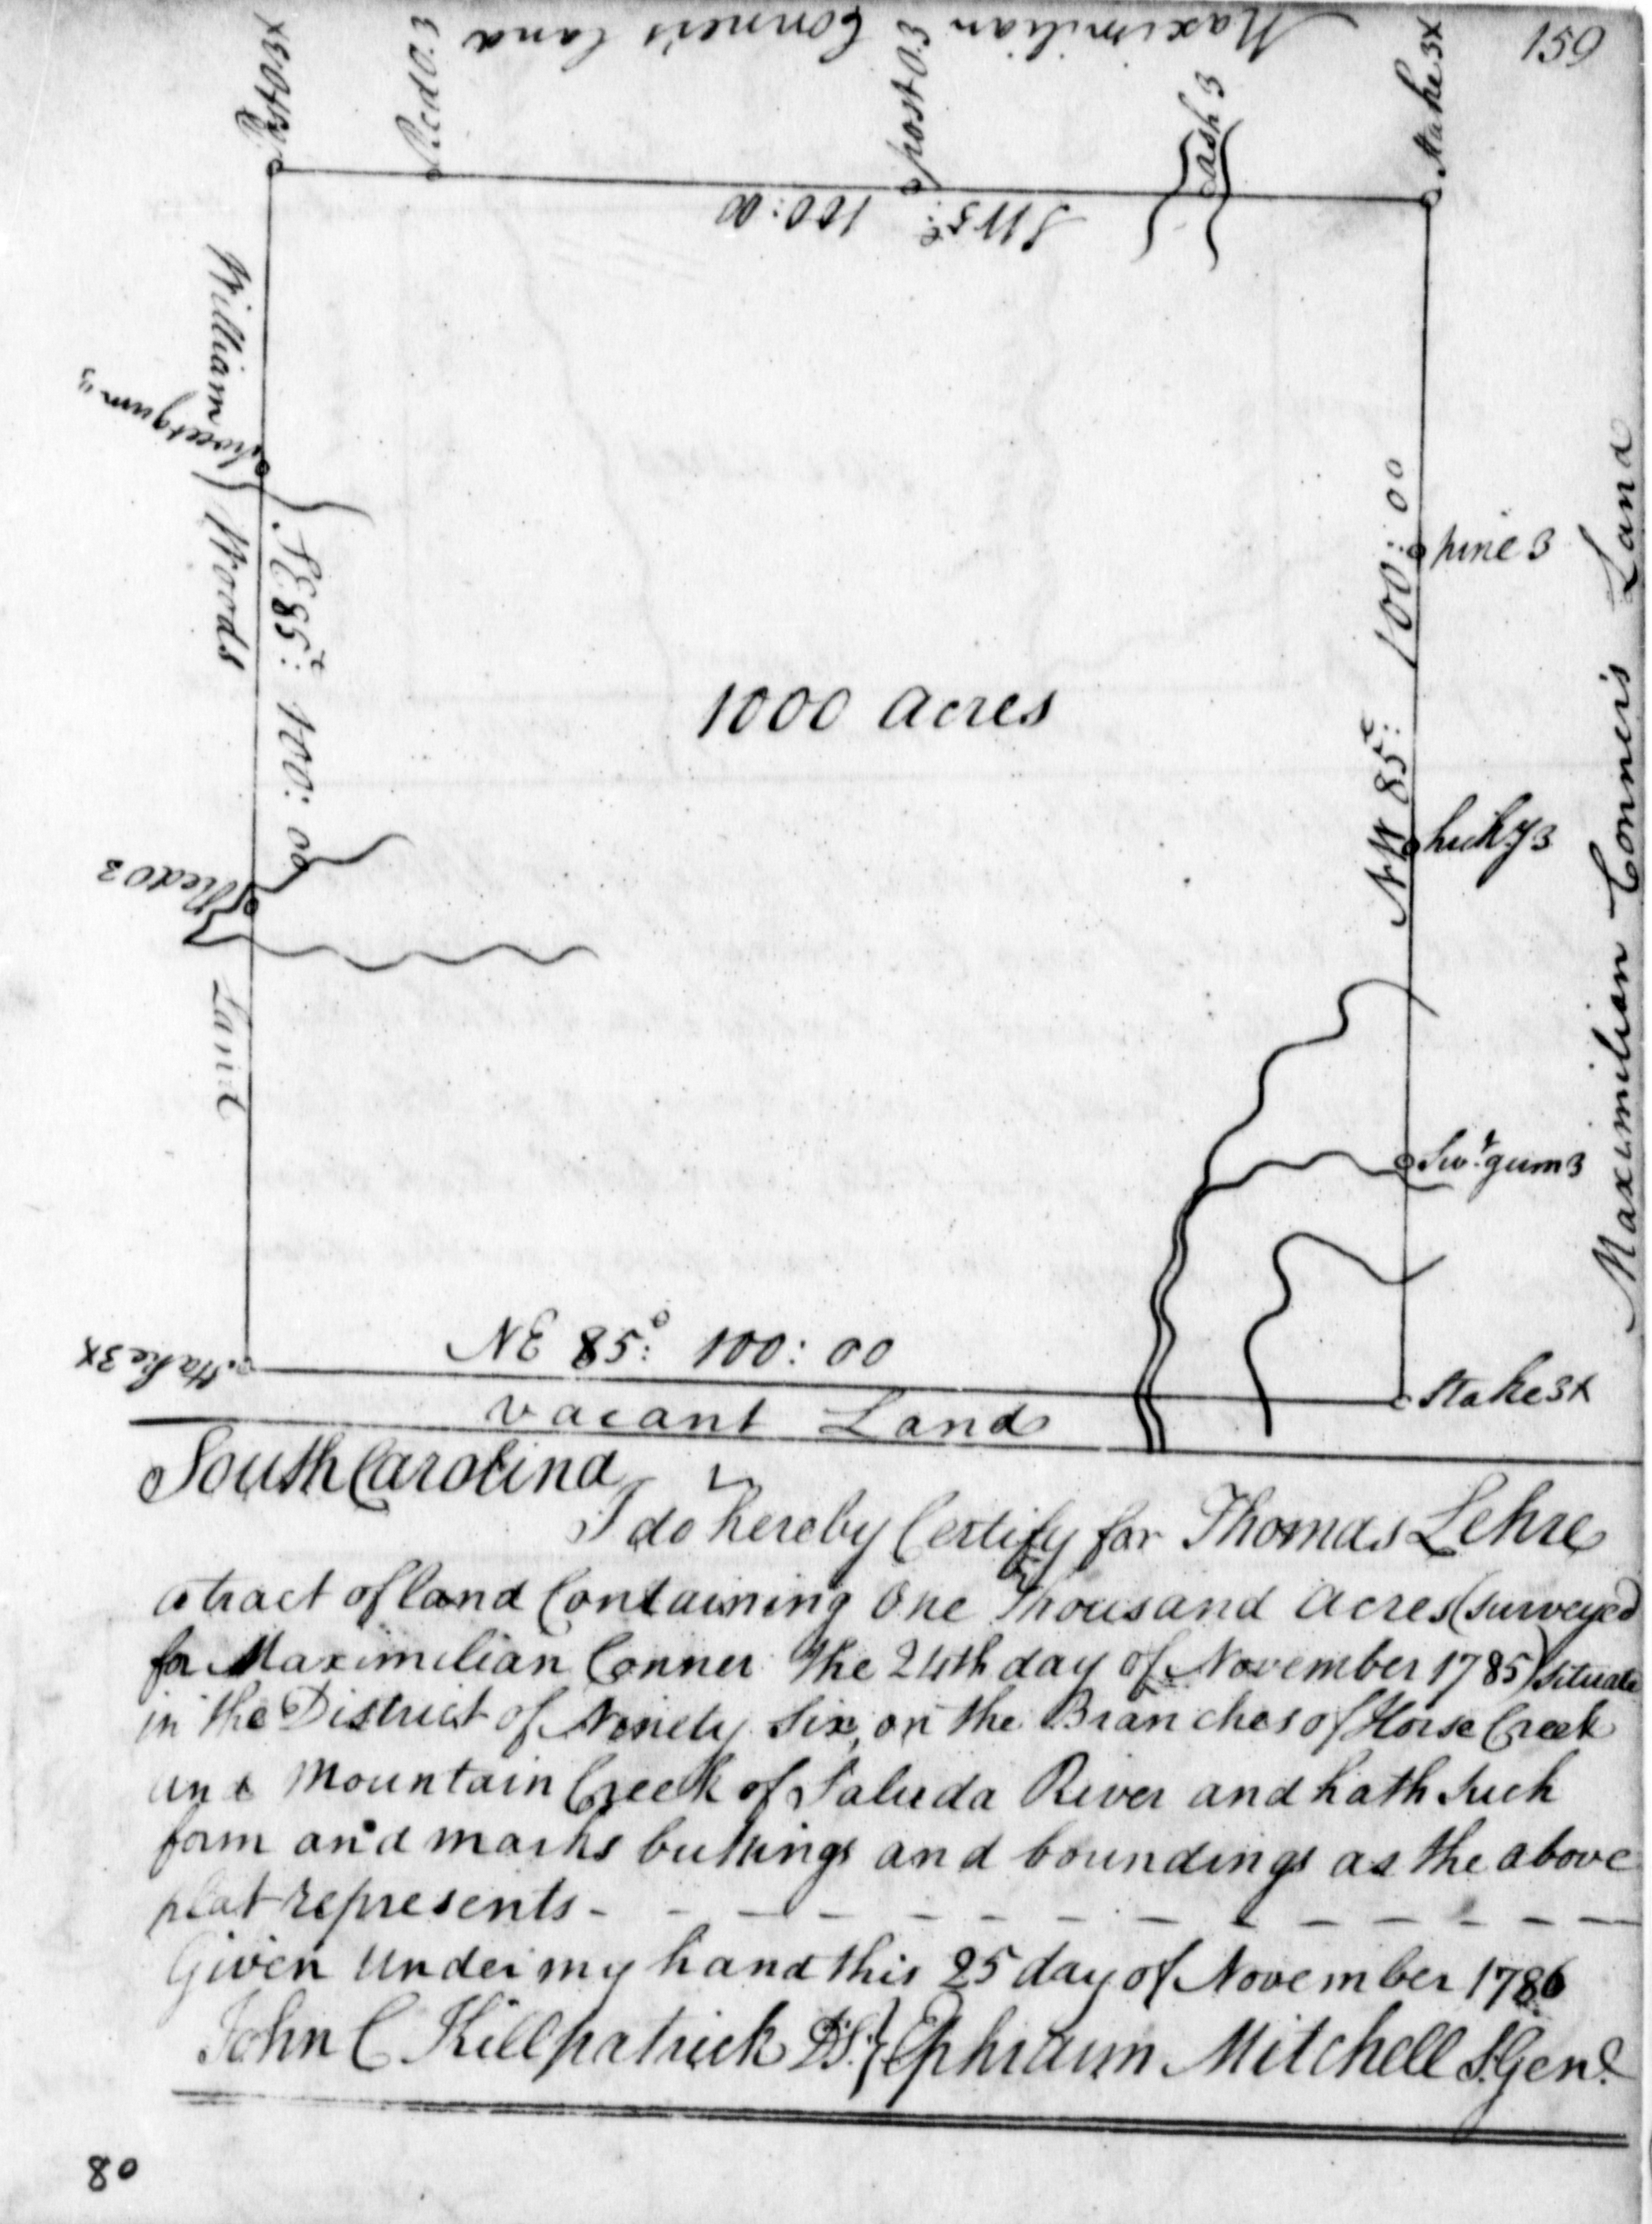 159
Maximilian Conner's land
Post O 3X
Red O. 3
post O. 3
ash 3
Stake 3X
SW 5: 100:00
William Woods Land
Sweetgum 3
SE 85: 100:00
Red O 3
Stake 3X
1000 acres
NW 85: 100:00
pine 3
hick.y 3
Swt. gum 3
Stake 3X
Maximilian Conner's Land
NE 85°: 100:00
Vacant Land
South Carolina
I do hereby Certify for Thomas Lehre
a tract of land Containing One Thousand Acres (surveyed
for Maximilian Conner the 24th day of November 1785) situate
in the District of Ninety Six, on the Branches of Horse Creek
and Mountain Creek of Saluda River and hath such
form and marks buttings and boundings as the above
plat represents - - - - - - - - - - - - - -
Given under my hand this 25 day of November 1786
John C Killpatrick D.S. } Ephraim Mitchell S. Genl.
80